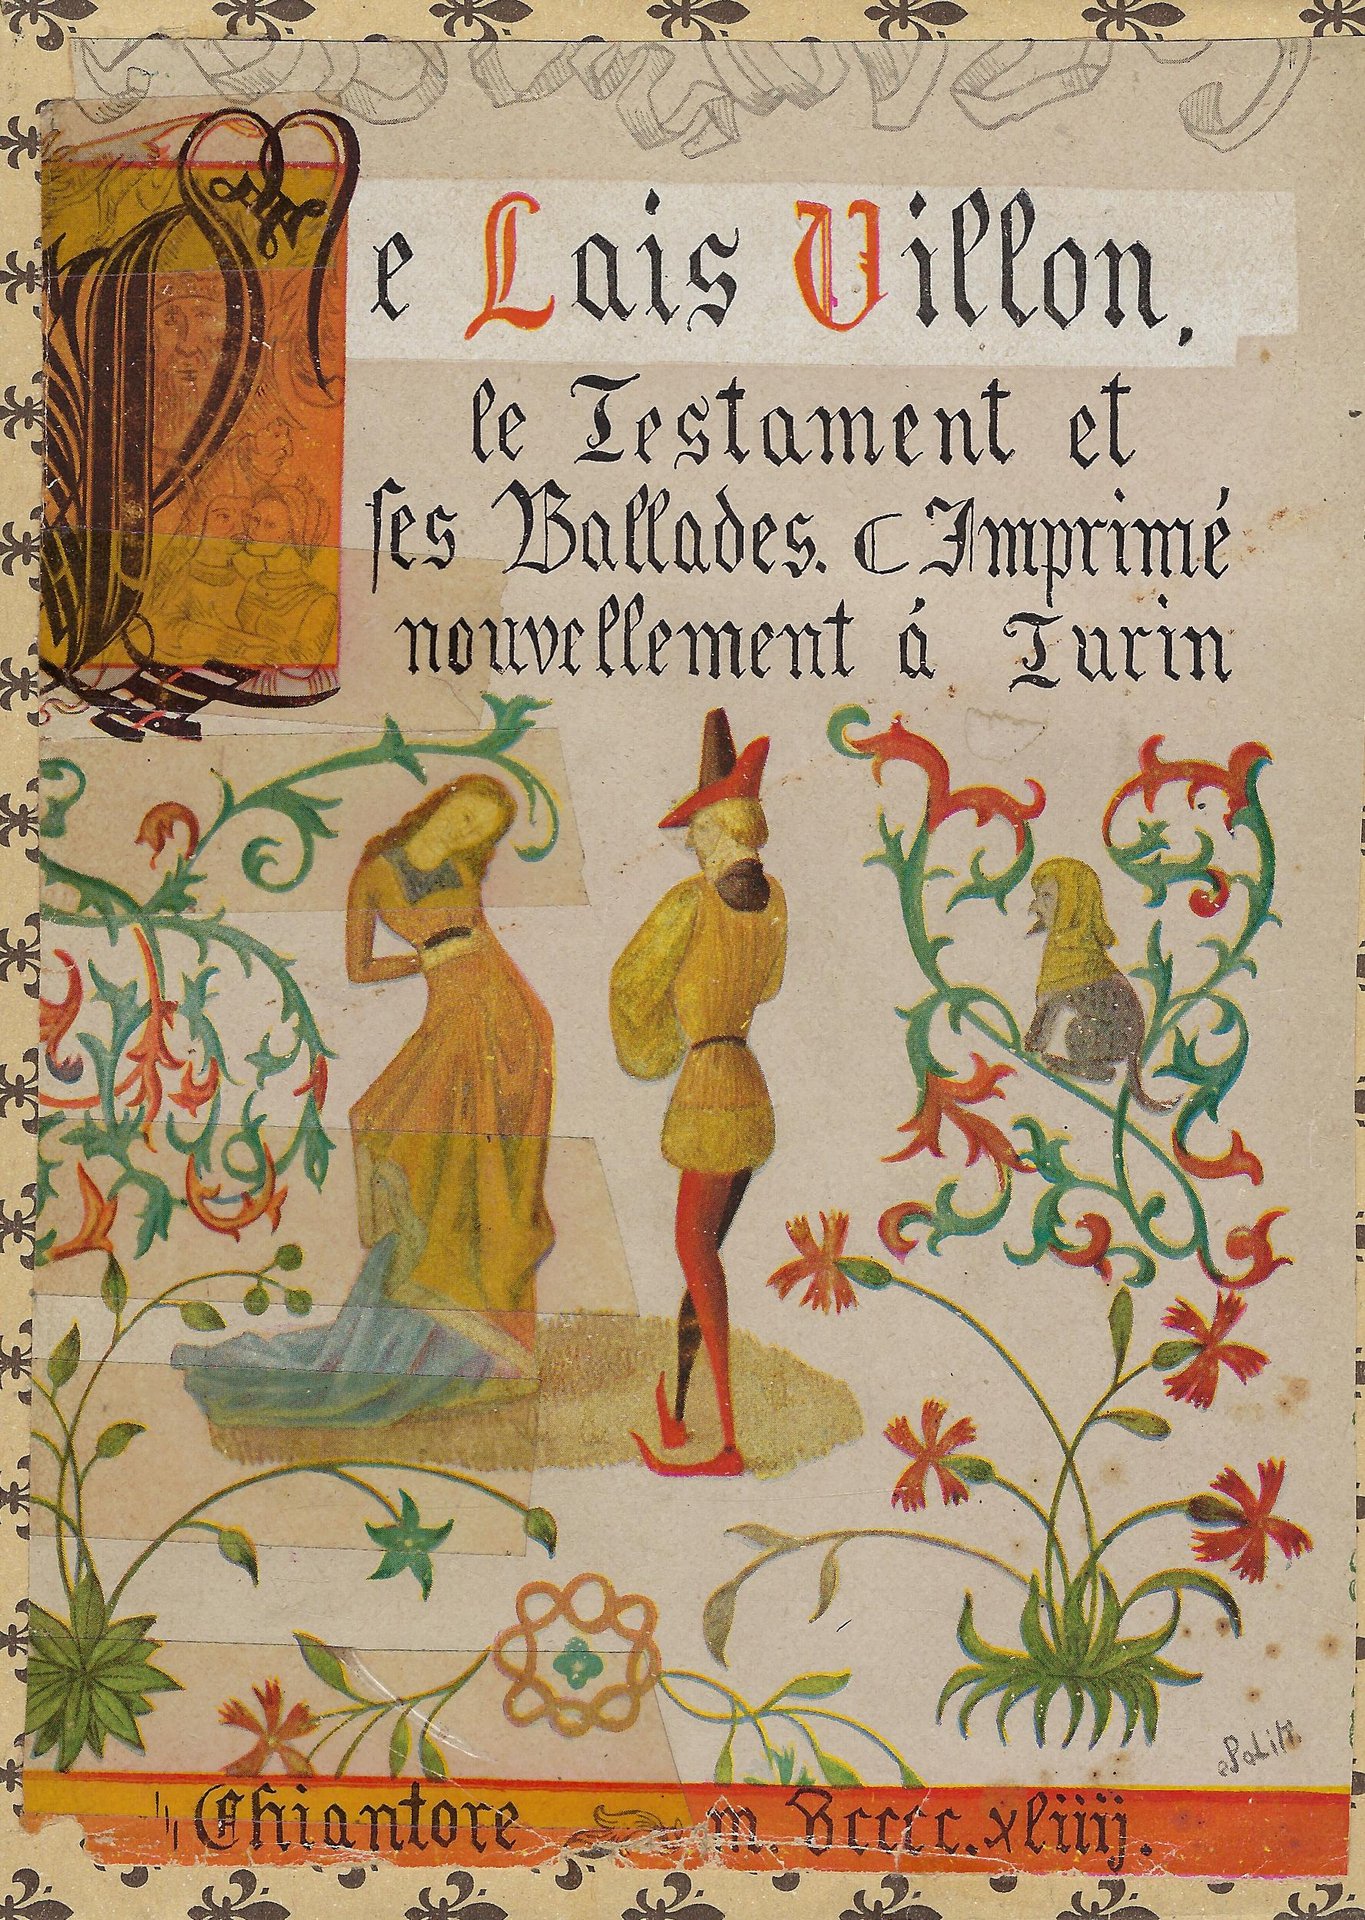 Le Lais Villon,
le Testament et
ſes Ballades. ⸿ Imprimé
nouvellement à Turin
Chiantore m. Dcccc.xliiij.